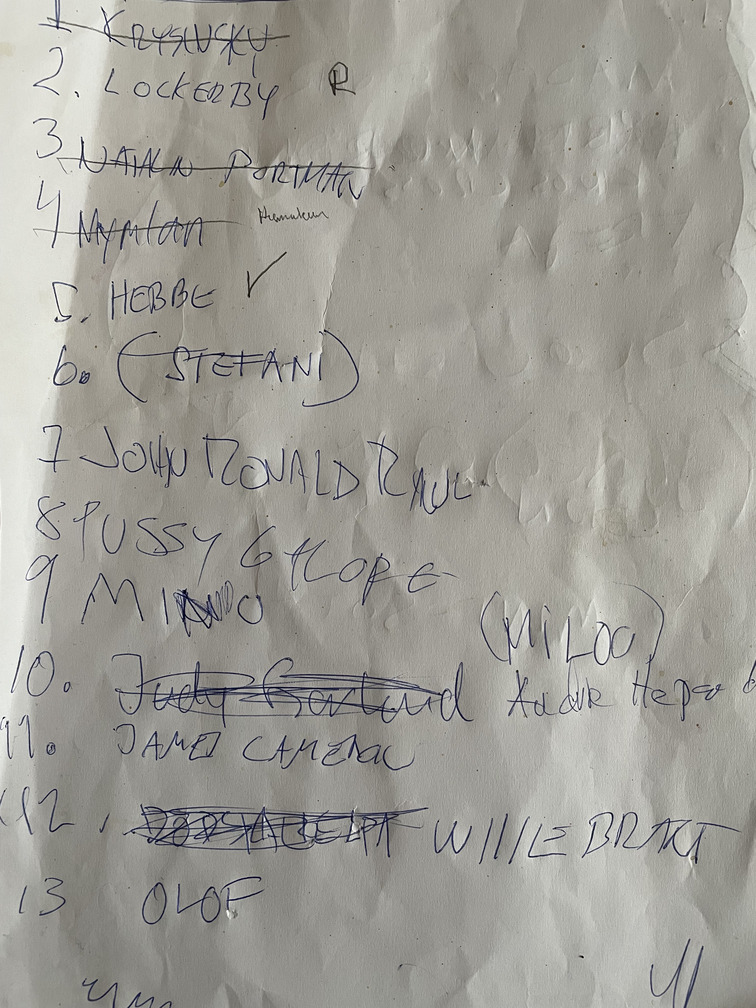 1. KRYSUSKY
2. LOCKERBY R
3 NATALIN PORTMAN
4 Nymlan
5. HEBBE ✓
6. (STEFAN)
7 JOHN RONALD RAUL
8 PUSSY GALORE
9 M (MILOO)
10. Judy Garland
11. JAMES CAMERON
12. WILLE BRAKT
13 OLOF